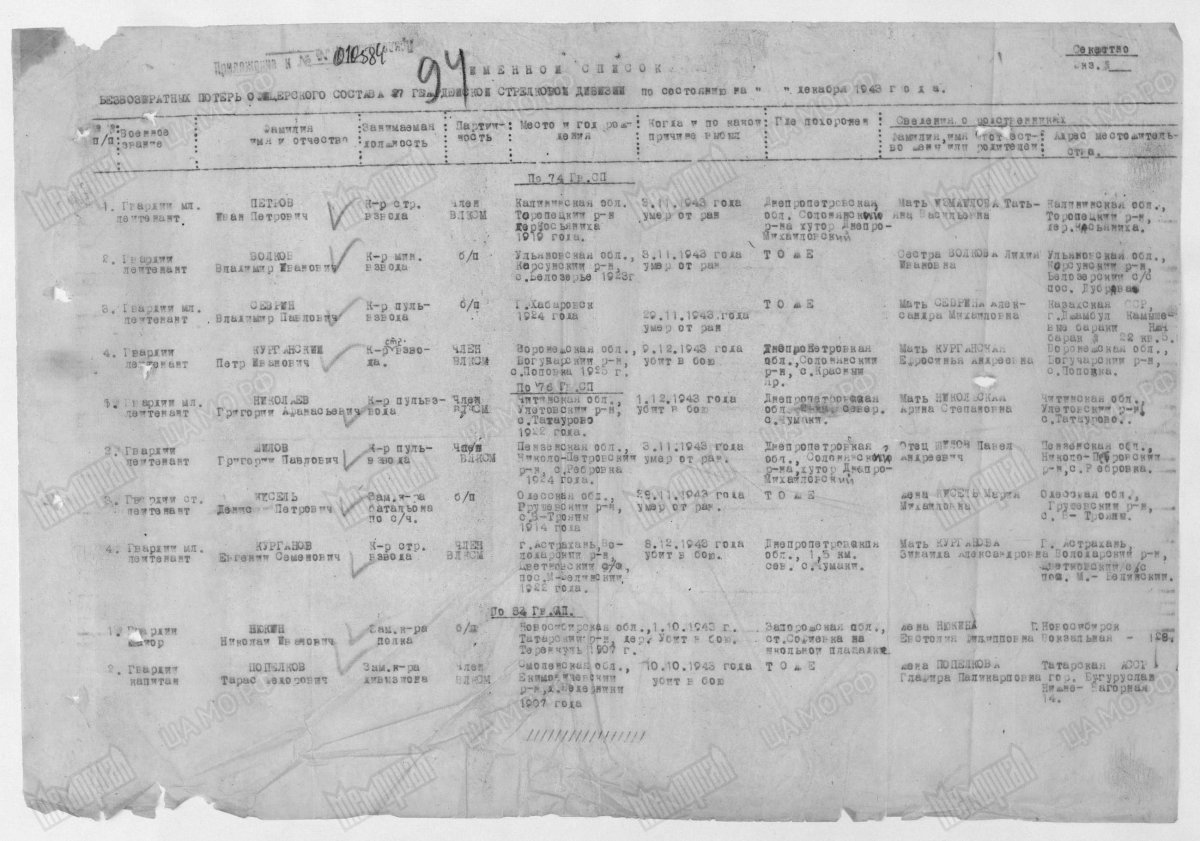 Приложение к № 010584
94
Секретно
экз. №
ИМЕННОЙ СПИСОК
БЕЗВОЗВРАТНЫХ ПОТЕРЬ ОФИЦЕРСКОГО СОСТАВА 27 ГВАРДЕЙСКОЙ СТРЕЛКОВОЙ ДИВИЗИИ по состоянию на " " декабря 1943 года.
№№ п/п Военное звание Фамилия имя и отчество Занимаемая должность Партийность Место и год рождения Когда и по какой причине выбыл Где похоронен Сведения о родственниках
Фамилия, имя и отчество жены или родителей Адрес местожительства.
По 74 Гв.СП
1. Гвардии мл. ПЕТРОВ К-р стр. Член Калининская обл. 3.11.1943 года Днепропетровская Мать ИЗМАИЛОВА Тать- Калининская обл.,
лейтенант Иван Петрович взвода ВЛКСМ Торопецкий р-н умер от ран обл. Солонянского яна Васильевна Торопецкий р-н,
1919 года. р-на хутор Днепро-
Михайловский
2. Гвардии ВОЛКОВ К-р мин. б/п Ульяновская обл. 3.11.1943 года ТОЖЕ Сестра ВОЛКОВА Лидия Ульяновская обл.,
лейтенант Владимир Иванович взвода Карсунский р-н, умер от ран Ивановна Карсунский р-н,
с.Белозерье 1923г Белозерский с/с
пос. Дуброва
3. Гвардии мл. СЕВРИН К-р пуль- б/п Г.Хабаровск ТОЖЕ Мать СЕВРИНА Алек- Казахская ССР,
лейтенант Владимир Павлович взвода 1924 года 29.11.1943.года сандра Михайловна г.Джамбул
умер от ран бараки
барак 22 кв.5.
4. Гвардии КУРГАНСКИЙ К-р стр. взво- ЧЛЕН Воронежская обл., 9.12.1943 года Днепропетровская Мать КУРГАНСКАЯ Воронежская обл.,
лейтенант Петр Иванович да. ВЛКСМ Богучарский р-н, убит в бою обл., Солонянский Ефросинья Андреевна Богучарский р-н,
с.Поповка 1925 г. р-н, с.Красный с.Поповка.
Яр.
По 76 Гв.СП
1. Гвардии мл. НИКОЛАЕВ К-р пульвз- Член Читинская обл., 1.12.1943 года Днепропетровская Мать НИКОЛЬСКАЯ Читинская обл.,
лейтенант Григорий Афанасьевич вода ВЛКСМ Улетовский р-н, убит в бою обл. север. Арина Степановна Улетовский р-н,
с.Татаурово с.Чумаки. с.Татаурово.
1922 года.
2. Гвардии ШИЛОВ К-р пуль- Член Пензенская обл., 3.11.1943 года Днепропетровская Отец ШИЛОВ Павел Пензенская обл.,
лейтенант Григорий Павлович взвода ВЛКСМ Николо-Петровский умер от ран. обл., Солонянского Андреевич Николо-Петровский
р-н, с.Ребровка р-на, хутор Днепро- р-н, с.Ребровка.
1924 года. Михайловский
3. Гвардии ст. КИСЕЛЬ Зам.к-ра б/п Одесская обл., 29.11.1943 года ТОЖЕ Жена КИСЕЛЬ Мария Одесская обл.,
лейтенант Денис Петрович батальона Грушевский р-н, умер от ран. Михайловна Грушевский р-н,
по с/ч. с.В-Трояны с. В- Трояны.
1914 года
4. Гвардии мл. КУРГАНОВ К-р стр. ЧЛЕН г.Астрахань, Во- 8.12.1943 года Днепропетровская Мать КУРГАНОВА Г. Астрахань,
лейтенант Евгений Семенович взвода ВЛКСМ лодарский р-н, убит в бою. обл., 1,5 км. Зинаида Александровна Володарский р-н,
Цветновский с/с, сев. с.Чумаки. Цветновский с/с
пос.М-Белинский, пос. М.- Белинский.
1922 года.
По 84 Гв.СП.
1. Гвардии НЮКИН Зам.к-ра б/п Новосибирская обл., 1.10.1943 г. Запорожская обл., Жена НЮКИНА Г.Новосибирск
майор Николай Иванович полка Татарский р-н, дер. убит в бою. ст.Софиевка на Евстолия Филипповна Вокзальная - 128.
1907 г. школьной площадке.
2. Гвардии ПОПЕЛКОВ Зам.к-ра Член Смоленская обл., 10.10.1943 года ТОЖЕ Жена ПОПЕЛКОВА Татарская АССР
капитан Тарас Федорович дивизиона ВЛКСМ Екимовичевский убит в бою Глафира Паликарповна гор. Бугуруслан
р-н, Нижне- Нагорная
1907 года 14.